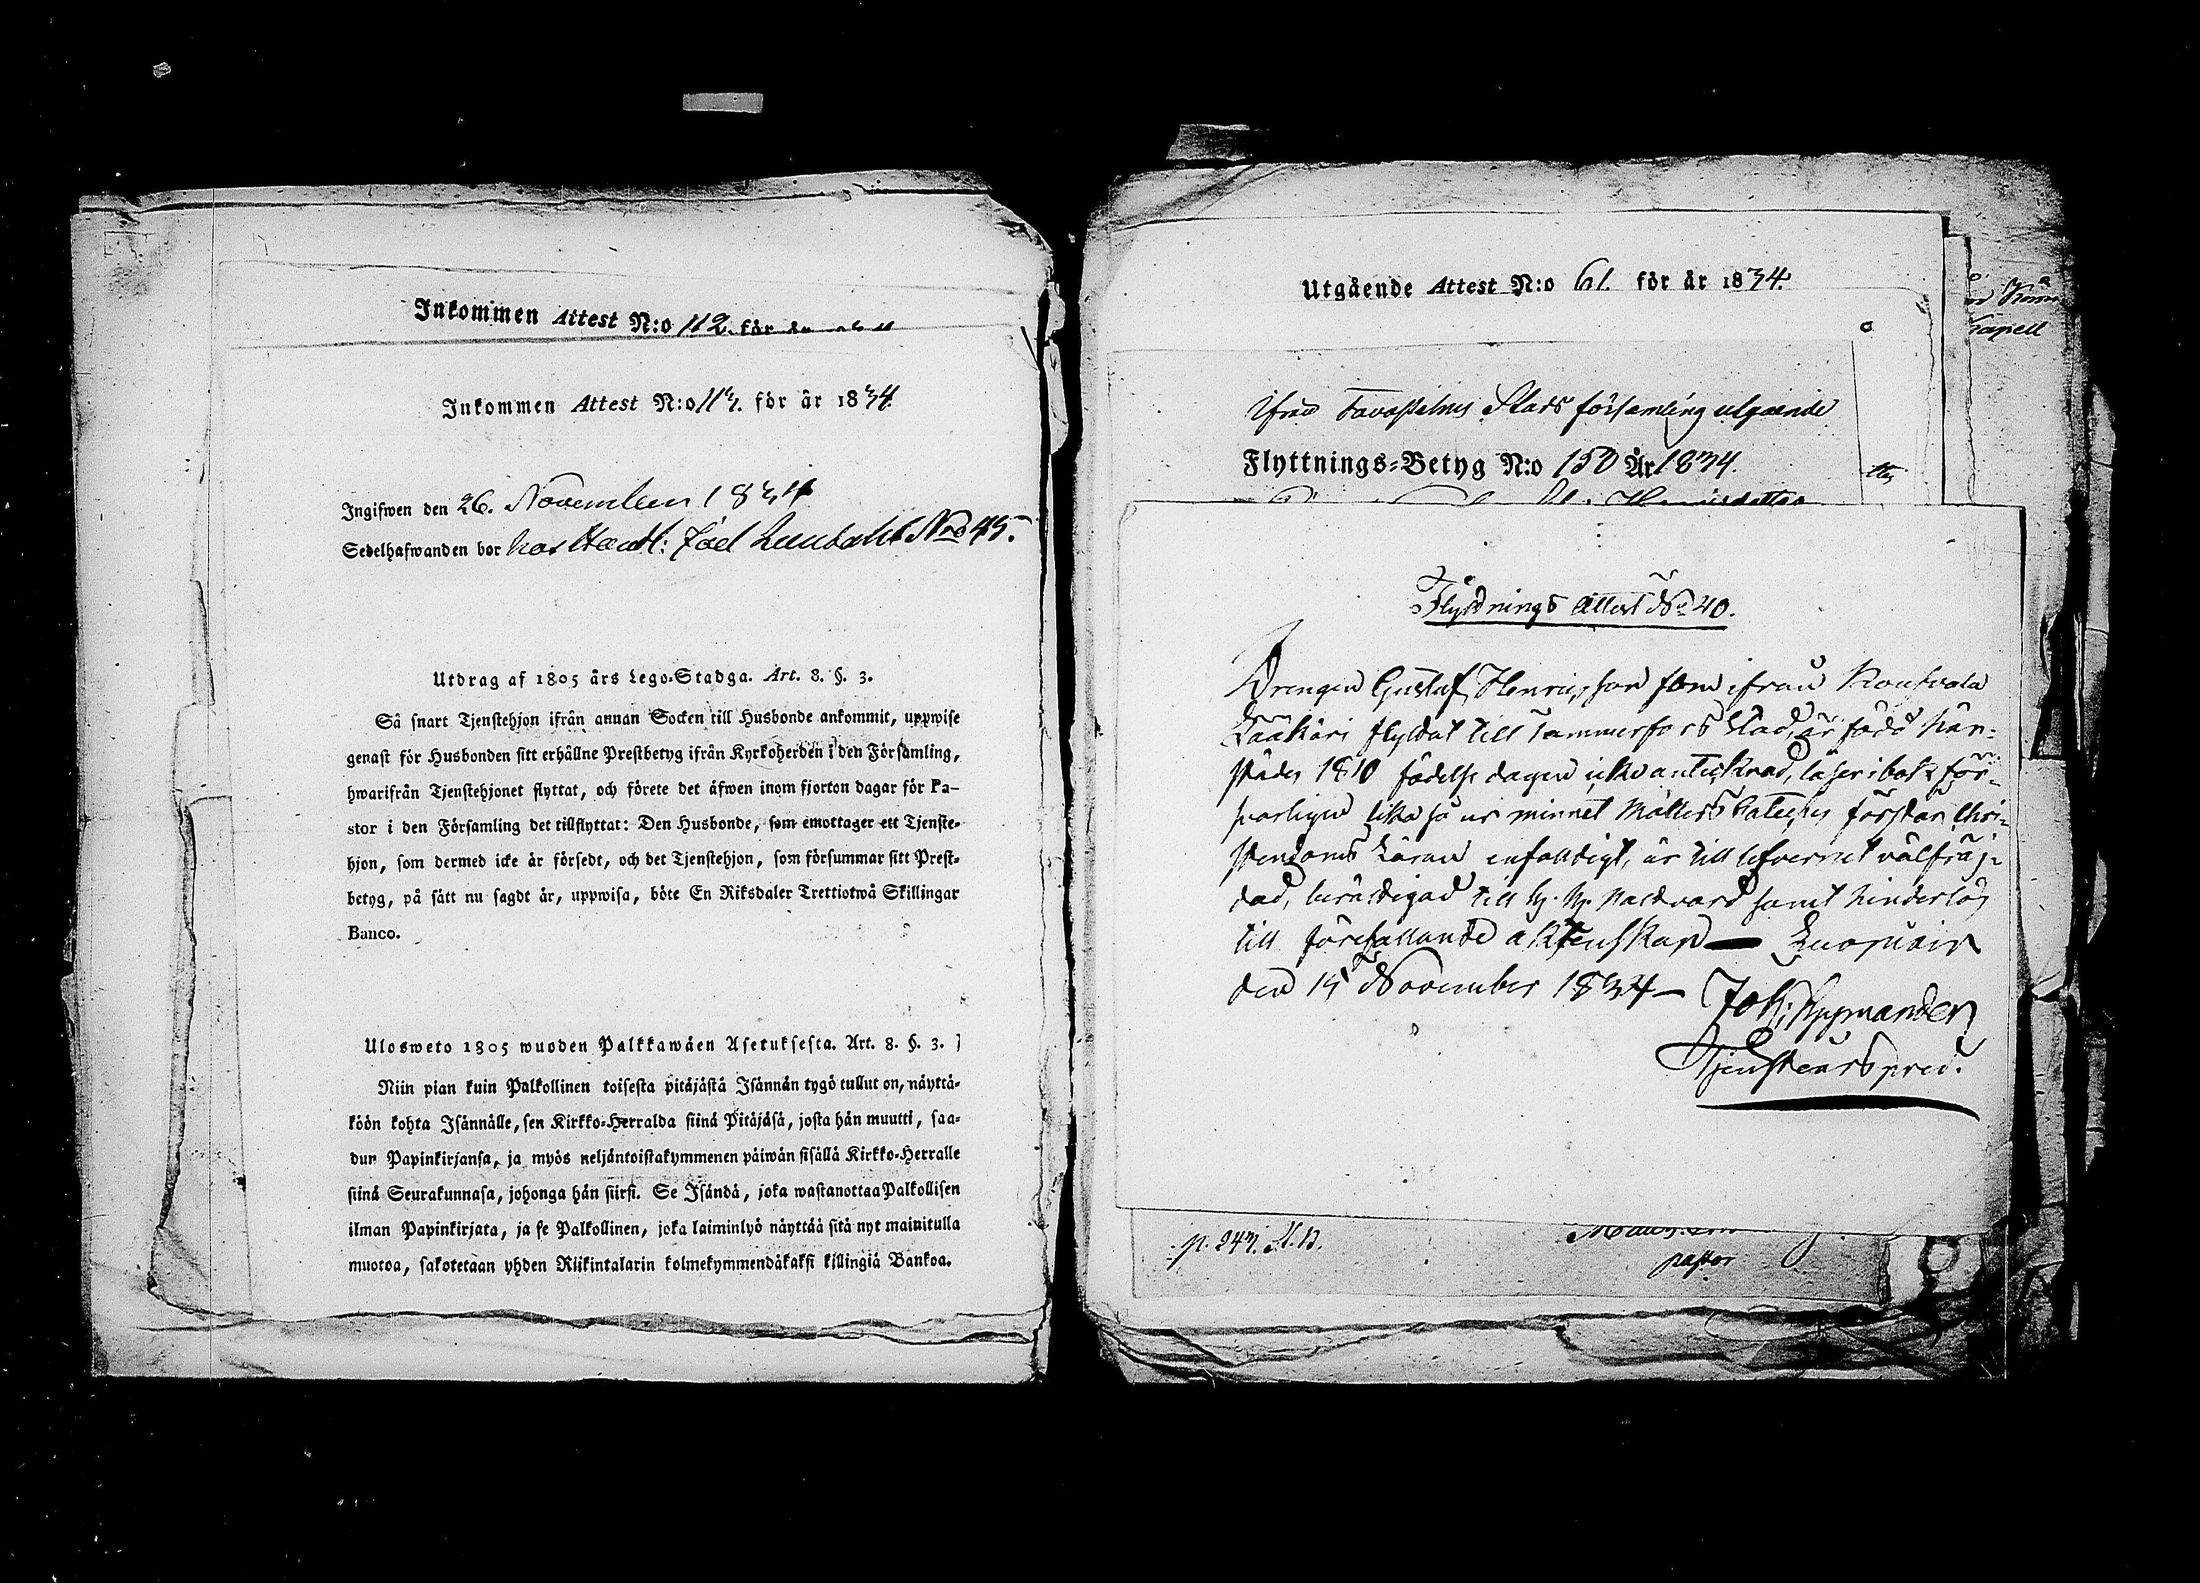 Inkommen Attest N:o 112. för år
Inkommen Attest N:o 113. för år 1834.
Ingifwen den 26. November 1834
Sedelhafwanden bor hos Handl: Joel Lindahl No 45.
Utdrag af 1805 års Lego-Stadga. Art. 8. §. 3.
Så snart Tjenstehjon ifrån annan Socken till Husbonde ankommit, uppwise
genast för Husbonden sitt erhållne Prestbetyg ifrån Kyrkoherden i den Församling,
hwarifrån Tjenstehjonet flyttat, och förete det äfwen inom fjorton dagar för Pa-
stor i den Församling det tillflyttat: Den Husbonde, som emottager ett Tjenste-
hjon, som dermed icke är försedt, och det Tjenstehjon, som försummar sitt Prest-
betyg, på sätt nu sagdt är, uppwisa, böte En Riksdaler Trettiotwå Skillingar
Banco.
Ulosweto 1805 wuoden Palkkawäen Asetuksesta. Art. 8. §. 3.
Niin pian kuin Palkollinen toisesta pitäjästä Isännän tygö tullut on, näyttä-
köön kohta Isännälle, sen Kirkko-Herralda siinä Pitäjäsä, josta hän muutti, saa-
dun Papinkirjansa, ja myös neljäntoistakymmenen päiwän sisällä Kirkko-Herralle
siinä Seurakunnasa, johonga hän siirsi. Se Isändä, joka wastanottaa Palkollisen
ilman Papinkirjata, ja se Palkollinen, joka laiminlyö näyttää sitä nyt mainitulla
muotoa, sakotetaan yhden Riikintalarin kolmekymmendäkaksi killingiä Bankoa.
Utgående Attest N:o 61. för år 1834.
Capell
Ifrån Tavastehus Stads församling utgående
Flyttnings-Betyg N:o 150 År 1834.
Flyttnings Attest No 40.
Drengen Gustaf Henricsson som ifrån
Lääkäri flyttat till Tammerfors Stad, är född här-
städes 1810 födelse dagen icke antecknad, läser i bok för-
svarligen lika så ur minnet Möllers Cateches förstår Chri-
stendoms Läran enfaldigt, är till lefvernet välfräj-
dad, berättigad till H. H. Nattvard samt hinderlös
till förefallande äktenskap — Luopiois
den 15 November 1834 — Joh: Nymander
Tjensteårspred.
p. 247. N.B.
pastor